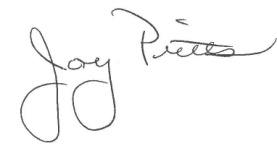 Joy Pitts